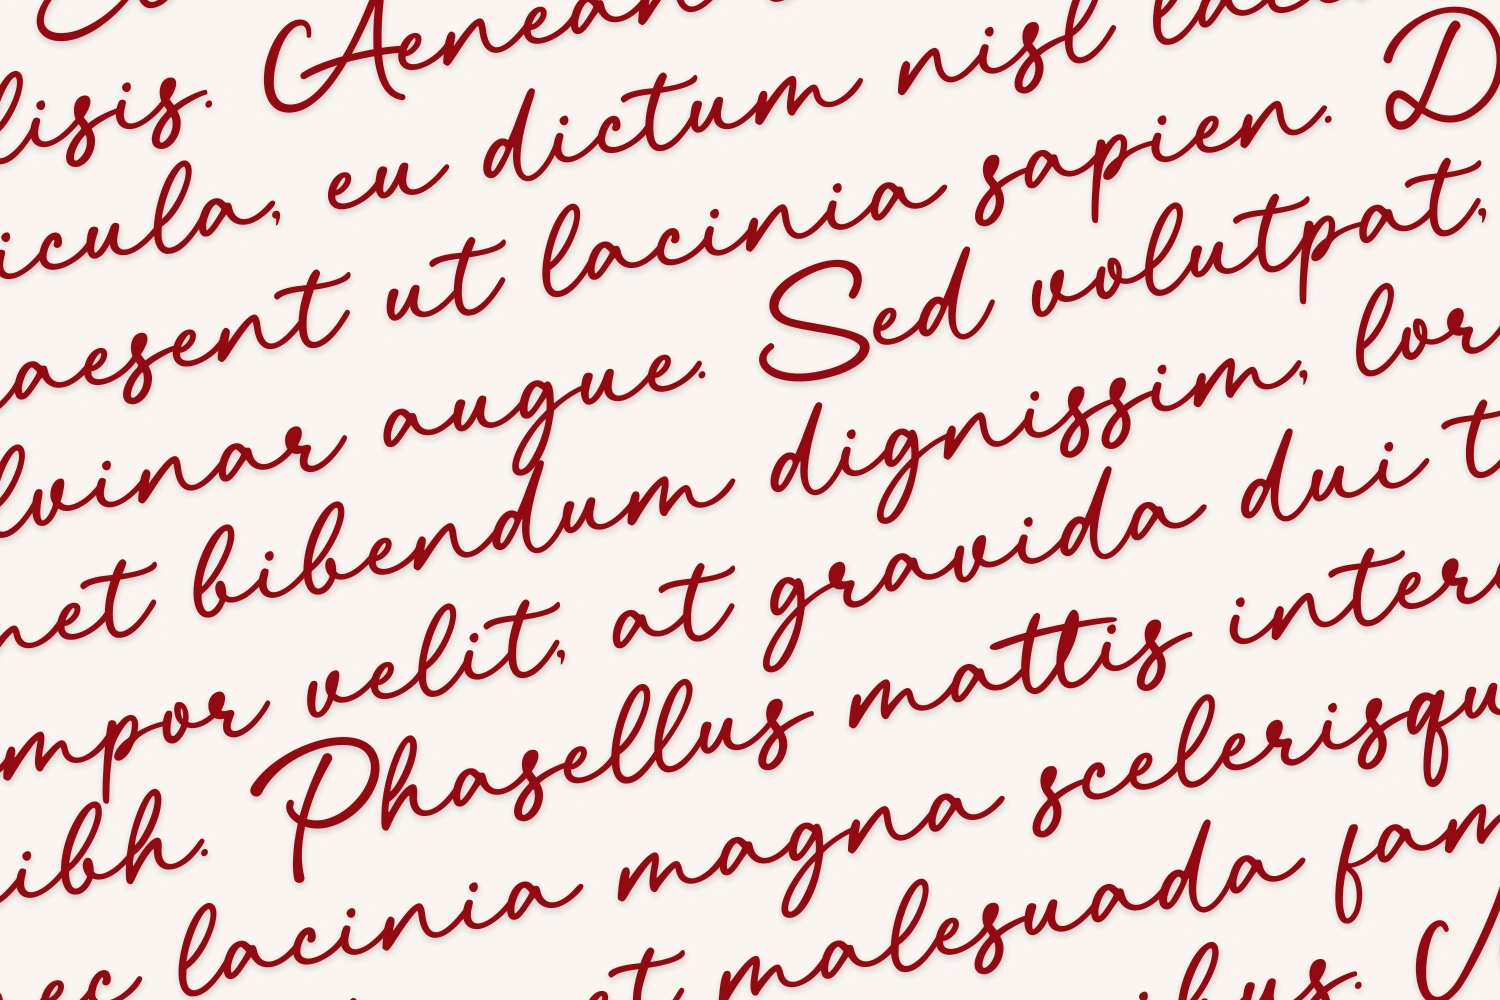 lisis. Aenean
icula, eu dictum nisl laci
aesent ut lacinia sapien. D
lvinar augue. Sed volutpat,
net bibendum dignissim, lor
mpor velit, at gravida dui t
ibh. Phasellus mattis inter
ec lacinia magna scelerisqu
et malesuada fam
bus.